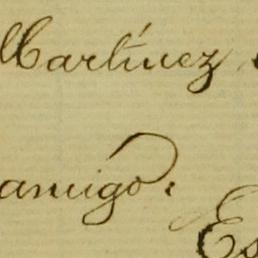 Martínez
amigo:
Es